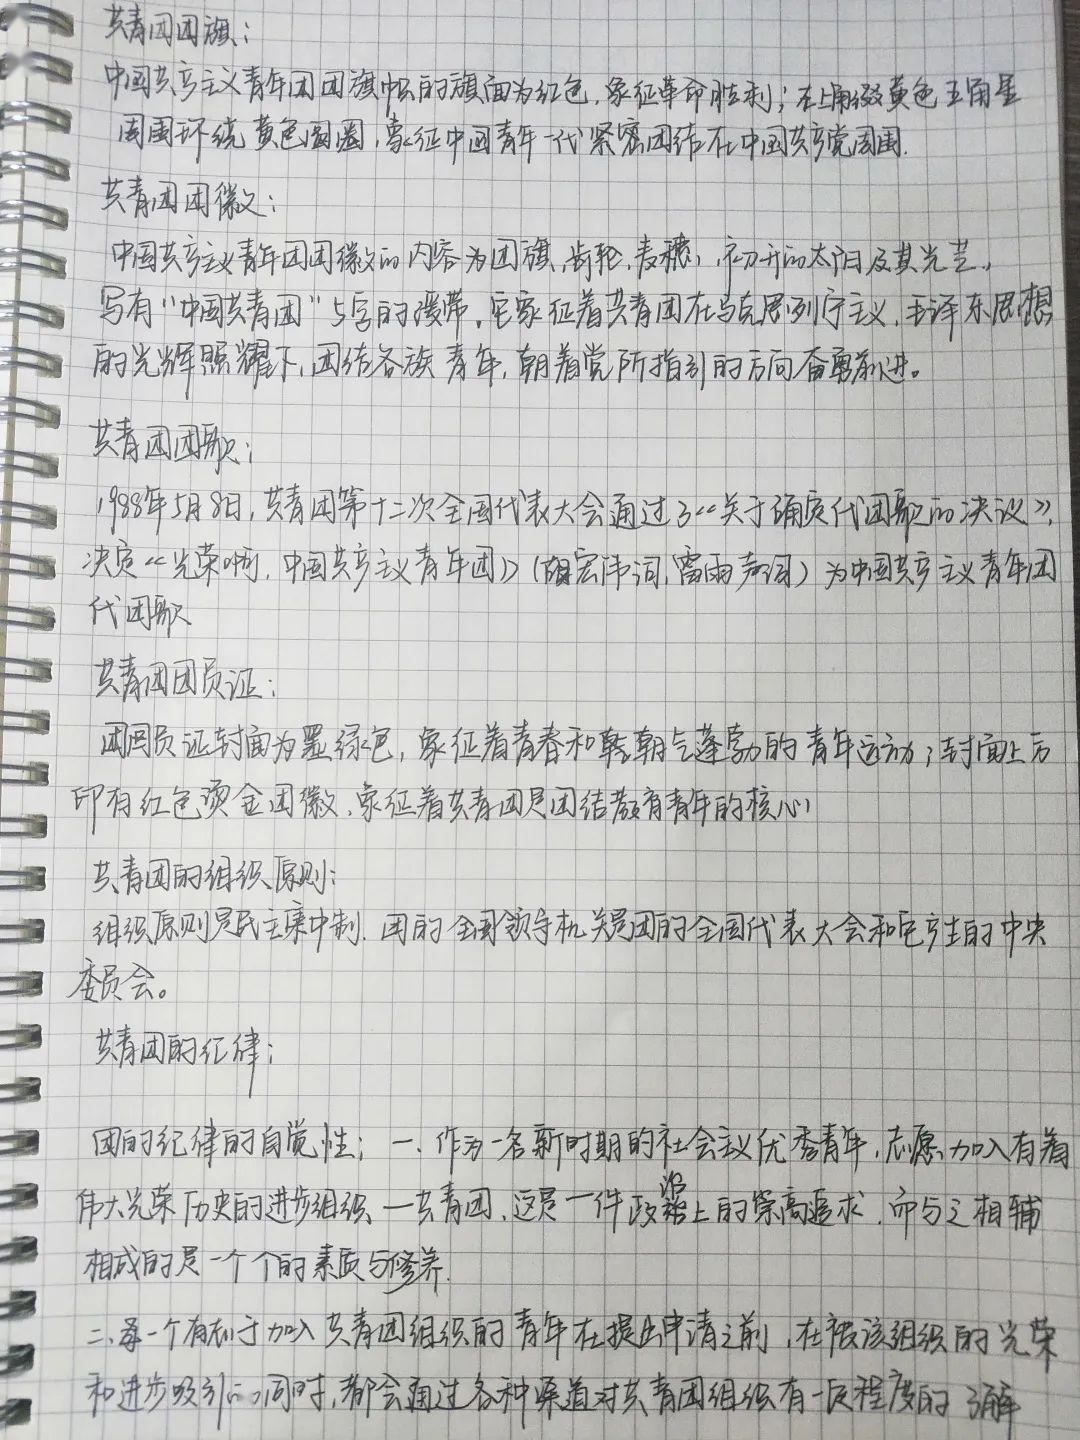 共青团团旗：
中国共产主义青年团团旗帜的旗面为红色，象征革命胜利；左上角缀黄色五角星
周围环绕黄色圆圈，象征中国青年一代紧密团结在中国共产党周围.
共青团团徽：
中国共产主义青年团团徽的内容为团旗，齿轮，麦穗，初升的太阳及其光芒，
写有“中国共青团”5字的绶带，它象征着共青团在马克思列宁主义，毛泽东思想
的光辉照耀下，团结各族青年，朝着党所指引的方向奋勇前进。
共青团团歌：
1988年5月8日，共青团第十二次全国代表大会通过了《关于确定代团歌的决议》，
决定《光荣啊，中国共产主义青年团》（胡宏伟词，雷雨声词）为中国共产主义青年团
代团歌
共青团团员证：
团员证封面为墨绿色，象征着青春和朝气蓬勃的青年运动；封面上方
印有红色烫金团徽，象征着共青团是团结教育青年的核心
共青团的组织原则：
组织原则是民主集中制. 团的全国领导机关是团的全国代表大会和它产生的中央
委员会。
共青团的纪律：
团的纪律的自觉性：一. 作为一名新时期的社会主义优秀青年，志愿加入有着
伟大光荣历史的进步组织一共青团，这是一件政治上的崇高追求，而与之相辅
相成的是一个个的素质与修养.
二、每一个有志于加入共青团组织的青年在提出申请之前，在被该组织的光荣
和进步吸引的同时，都会通过各种渠道对共青团组织有一定程度的了解